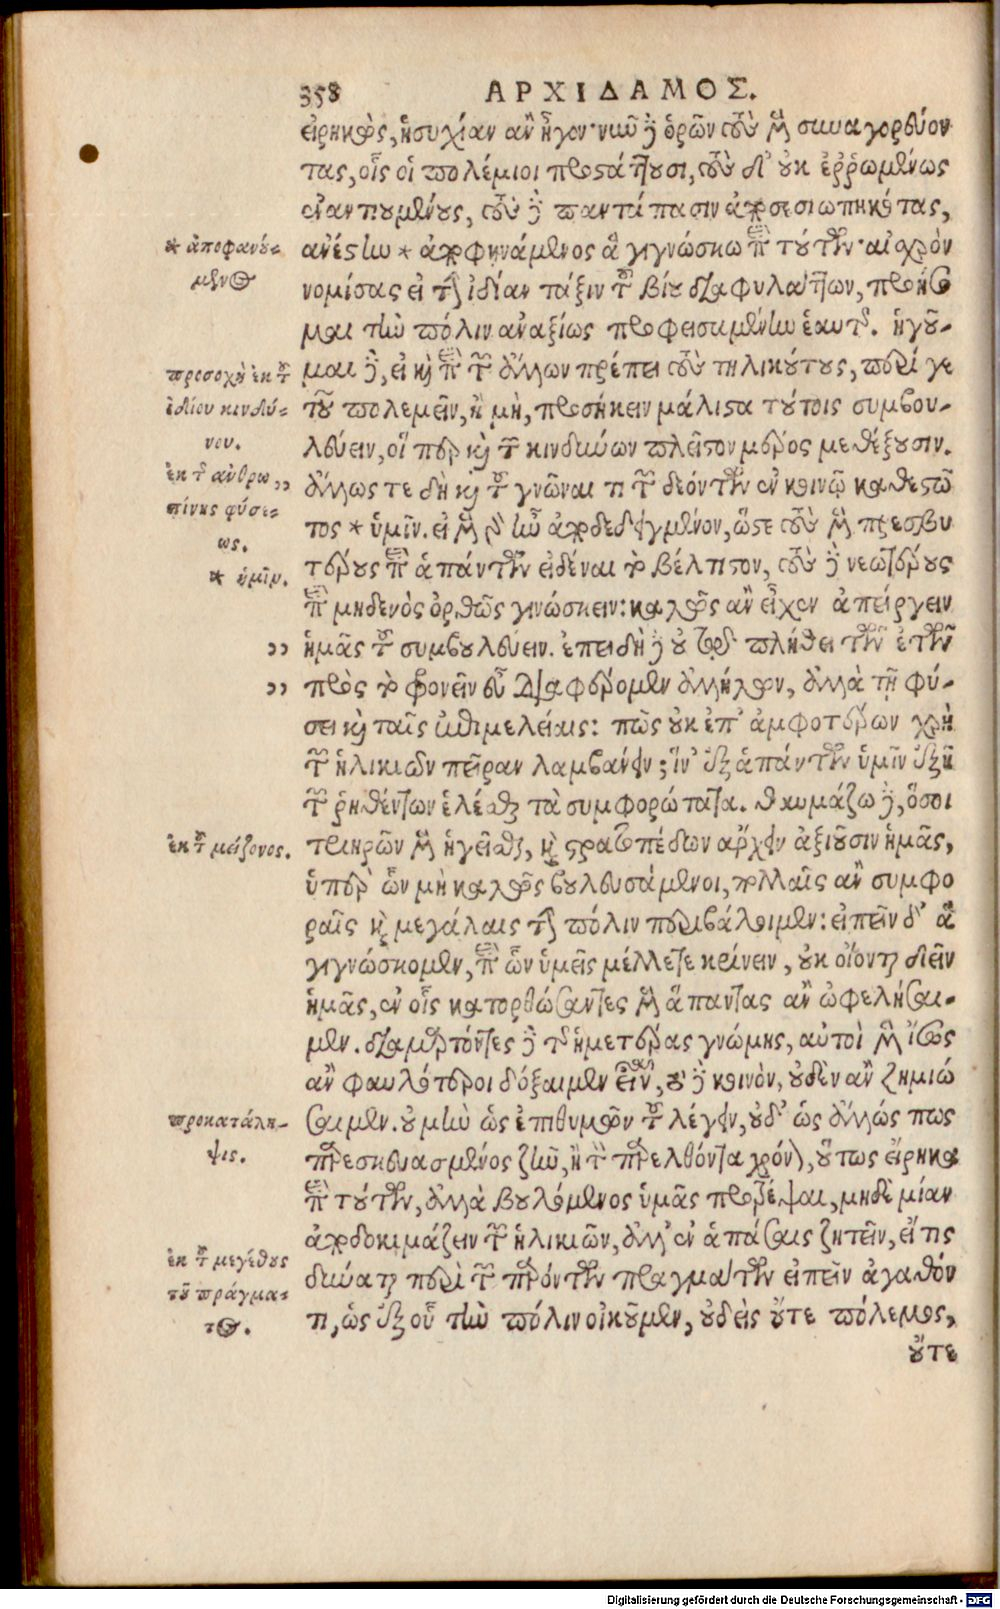 358 ΑΡΧΙΔΑΜΟΣ.
εἰρηκὼς, ἡσυχίαν ἂν ἦγον· νῦν δ' ὁρῶν τοὺς μὲν συναγορεύον
τας, οἷς οἱ πολέμιοι προστάττουσι, τοὺς δ' οὐκ ἐῤῥωμένως
ἐναντιουμένους, τοὺς δὲ παντάπασιν ἀποσεσιωπηκότας,
ἀνέστην * ἀποφηνάμενος ἃ γιγνώσκω περὶ τούτων· αἰσχρὸν
νομίσας εἰ τὴν ἰδίαν τάξιν τοῦ βίου διαφυλάττων, προήσο
μαι τὴν πόλιν ἀναξίως ψηφισαμένην ἑαυτῆς. ἡγοῦ-
μαι δὲ, εἰ καὶ περὶ τῶν ἄλλων πρέπει τοὺς τηλικούτους, περί γε
τοῦ πολεμεῖν, ἢ μὴ, προσήκειν μάλιστα τούτοις συμβου-
λεύειν, οἵ περ καὶ τῶν κινδύνων πλεῖστον μέρος μεθέξουσιν.
ἄλλως τε δὴ καὶ τοῦ γνῶναι τι τῶν δεόντων ἐν κοινῷ καθεστῶ
τος * ὑμῖν. εἰ μὲν γὰρ ἦν ἀποδεδειγμένον, ὥστε τοὺς μὲν πρεσβυ
τέρους περὶ ἁπάντων εἰδέναι τὸ βέλτιστον, τοὺς δὲ νεωτέρους
περὶ μηδενὸς ὀρθῶς γινώσκειν: καλῶς ἂν εἶχεν ἀπείργειν
ἡμᾶς τοῦ συμβουλεύειν. ἐπειδὴ δ' οὐ τῷ πλήθει τῶν ἐτῶν
πρὸς τὸ φρονεῖν εὖ διαφέρομεν ἀλλήλων, ἀλλὰ τῇ φύ-
σει καὶ ταῖς ἐπιμελείαις: πῶς οὐκ ἐπ' ἀμφοτέρων χρὴ
τῶν ἡλικιῶν πεῖραν λαμβάνειν; ἵν' ἐξ ἁπάντων ὑμῖν ἐξῇ
τῶν ῥηθέντων ἑλέσθαι τὰ συμφορώτατα. θαυμάζω δ', ὅσοι
τριηρῶν μὲν ἡγεῖσθαι, καὶ στρατοπέδων ἄρχειν ἀξιοῦσιν ἡμᾶς,
ὑπὲρ ὧν μὴ καλῶς βουλευσάμενοι, πολλαῖς ἂν συμφο
ραῖς καὶ μεγάλαις τὴν πόλιν περιβάλοιμεν: εἰπεῖν δ' ἃ
γιγνώσκομεν, περὶ ὧν ὑμεῖς μέλλετε κρίνειν, οὐκ οἴονται δεῖν
ἡμᾶς, ἐν οἷς κατορθώσαντες μὲν ἅπαντας ἂν ὠφελήσαι-
μεν. διαμαρτόντες δὲ τῆς ἡμετέρας γνώμης, αὐτοὶ μὲν ἴσως
ἂν φαυλότεροι δόξαιμεν εἶναι, τὸ δὲ κοινὸν, οὐδὲν ἂν ζημιώ
σαιμεν. οὐ μὴν ὡς ἐπιθυμῶν τοῦ λέγειν, οὐδ' ὡς ἄλλως πως
παρεσκευασμένος ζῆν, ἢ τὸν παρελθόντα χρόνον, οὕτως εἴρηκα
περὶ τούτων, ἀλλὰ βουλόμενος ὑμᾶς προτρέψαι, μηδὲ μίαν
ἀποδοκιμάζειν τῶν ἡλικιῶν, ἀλλ' ἐν ἁπάσαις ζητεῖν, εἴ τις
δύναται περὶ τῶν παρόντων πραγμάτων εἰπεῖν ἀγαθόν
τι, ὡς ἐξ οὗ τὴν πόλιν οἰκοῦμεν, οὐδεὶς οὔτε πόλεμος,
οὔτε
* ἀποφανού-
μενος
προσοχὴ ἐκ τοῦ
ἰδίου κινδύ-
νου.
ἐκ τῆς ἀνθρω ,,
πίνης φύσε-
ως.
* ὑμῖν.
,,
,,
ἐκ τοῦ μείζονος.
προκατάλη-
ψις.
ἐκ τοῦ μεγέθους
τοῦ πράγμα-
τος.
Digitalisierung gefördert durch die Deutsche Forschungsgemeinschaft - DFG